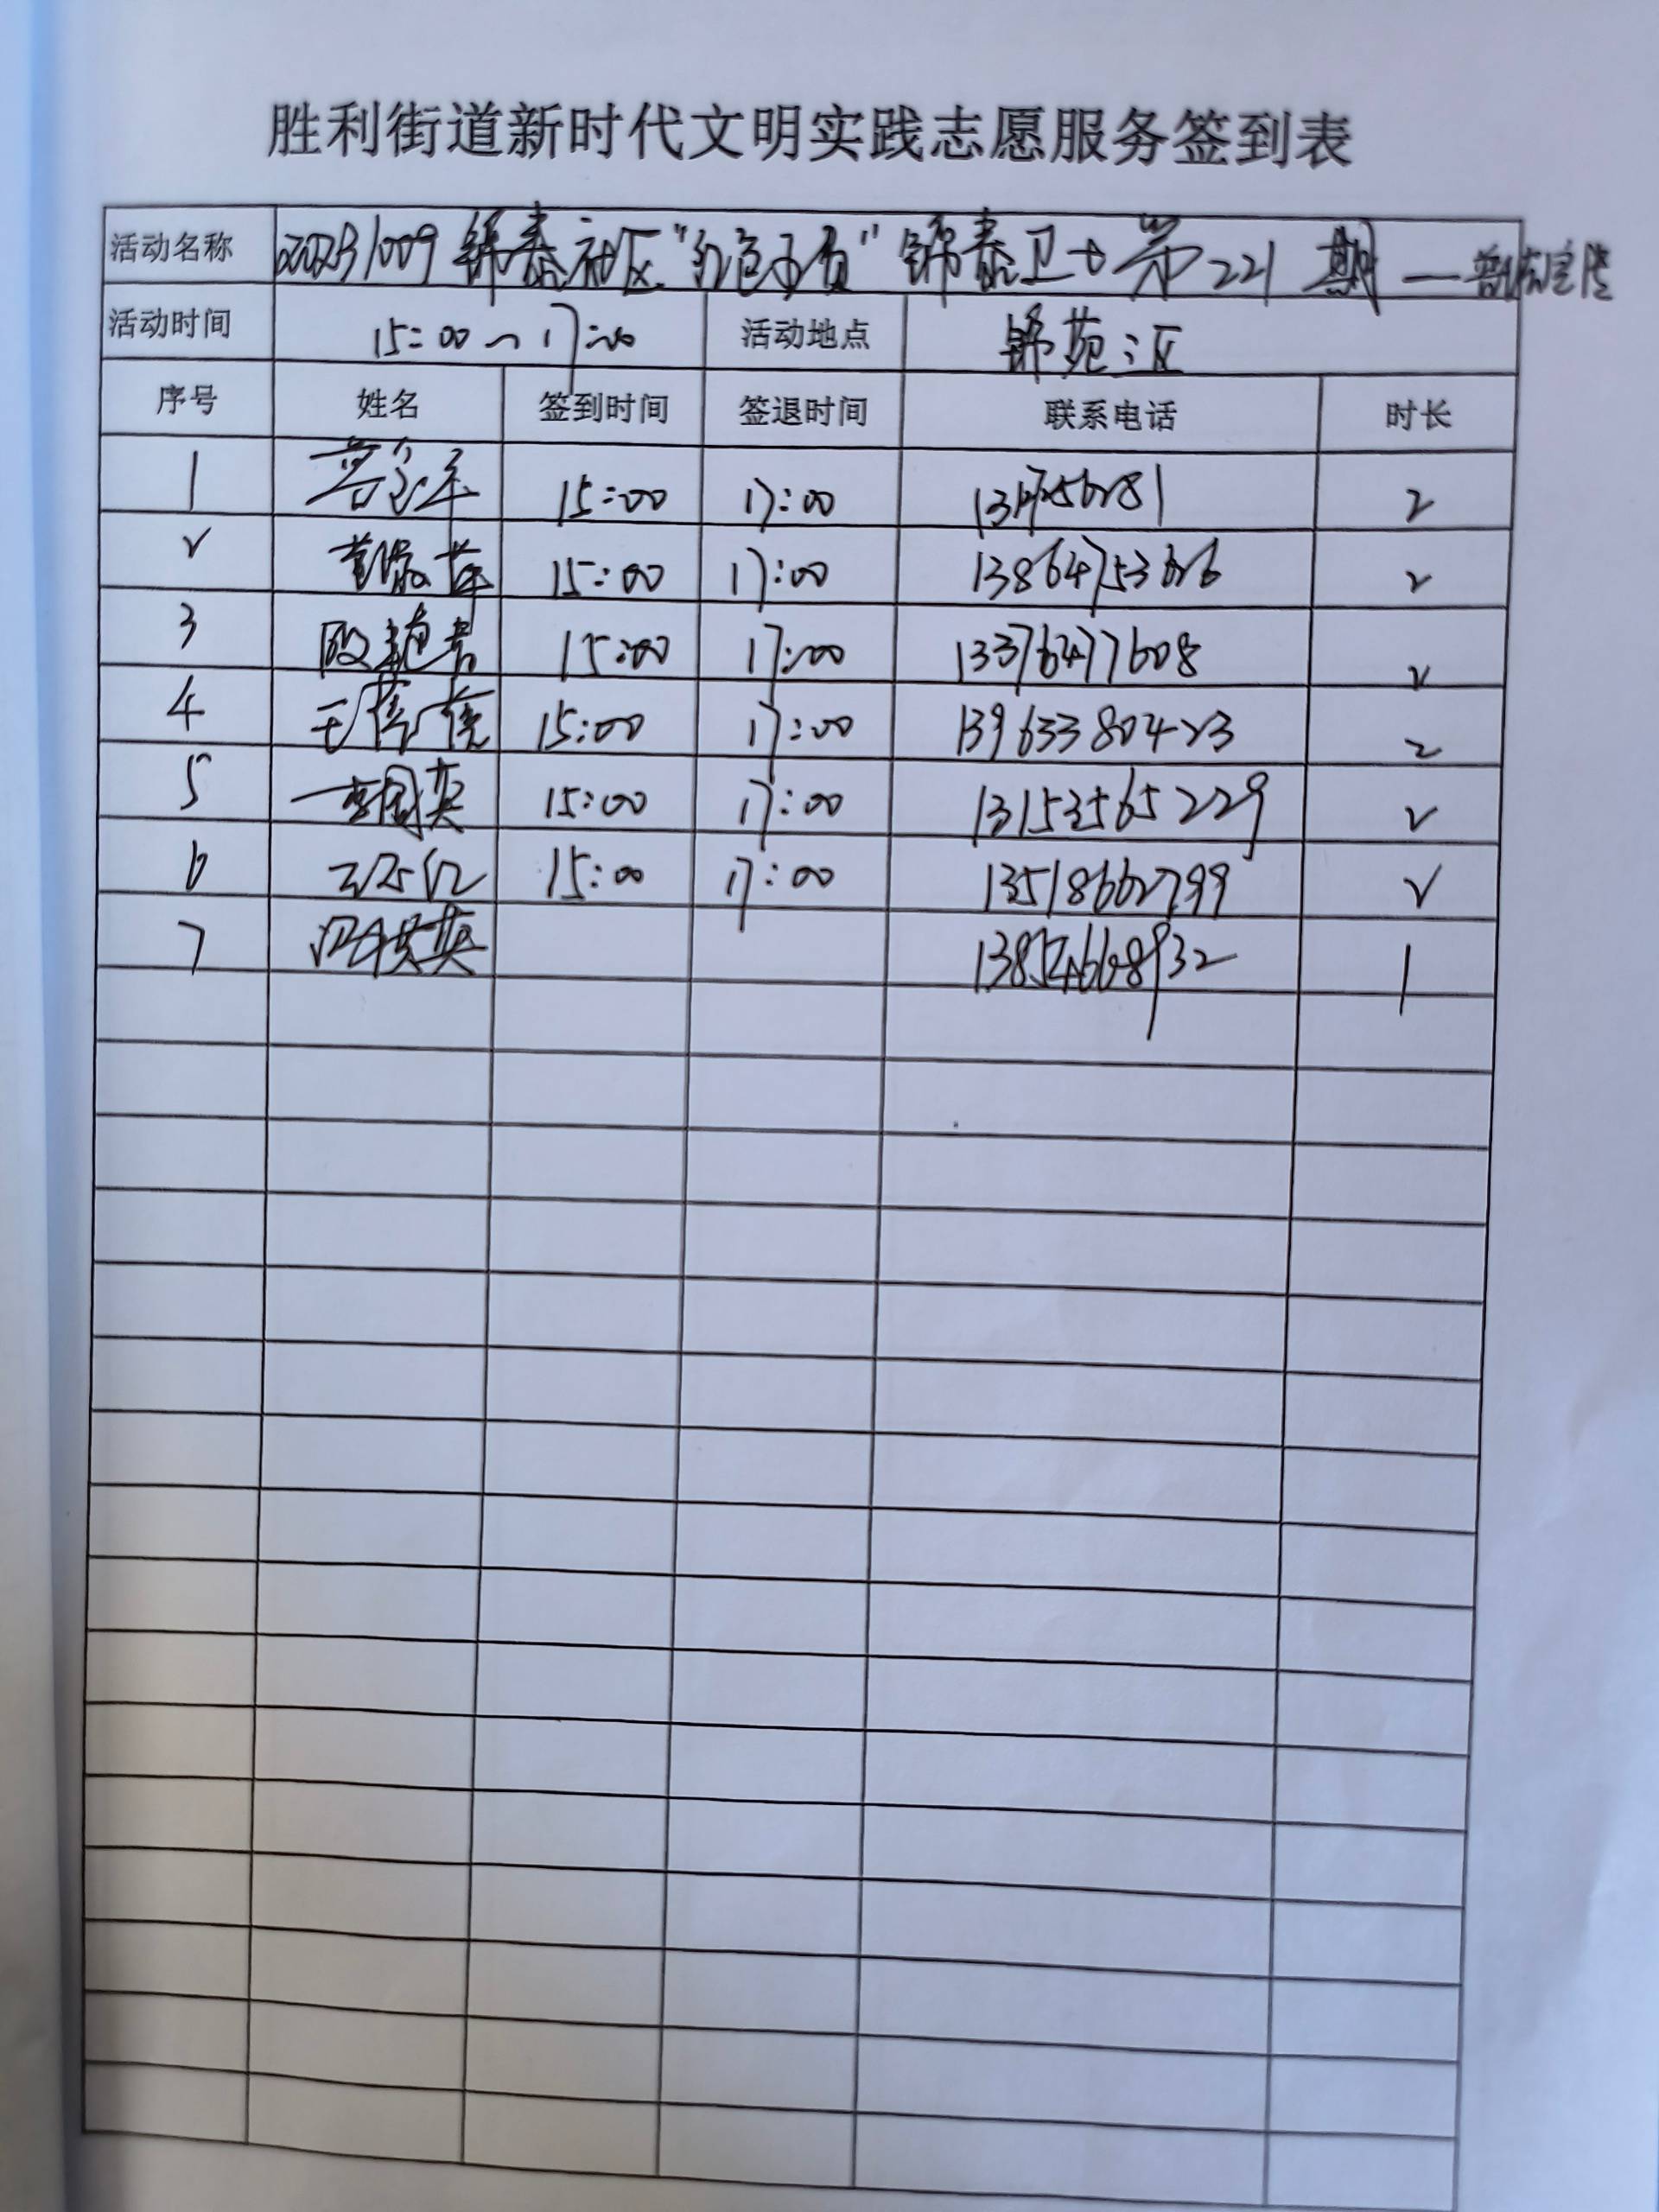 胜利街道新时代文明实践志愿服务签到表
活动名称 20231009 锦泰社区“红色物资”锦泰卫士第221期—
活动时间 15:00～17:00 活动地点 锦苑三区
序号 姓名 签到时间 签退时间 联系电话 时长
1 15:00 17:00 2
2 15:00 17:00 13864753626 2
3 15:00 17:00 13376477608 2
4 王蓓蓓 15:00 17:00 13963380423 2
5 李国英 15:00 17:00 13153565229 2
6 15:00 17:00 13518662799 2
7 13854668932 1